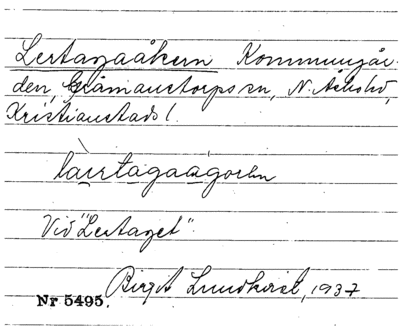 Lertagaåkern Kommungår-
den, Gråmanstorps sn, N. Åsbo hd,
Kristianstads l.
Vid "Lertaget"
Birgit Lundkvist, 1937
Nr 5495.